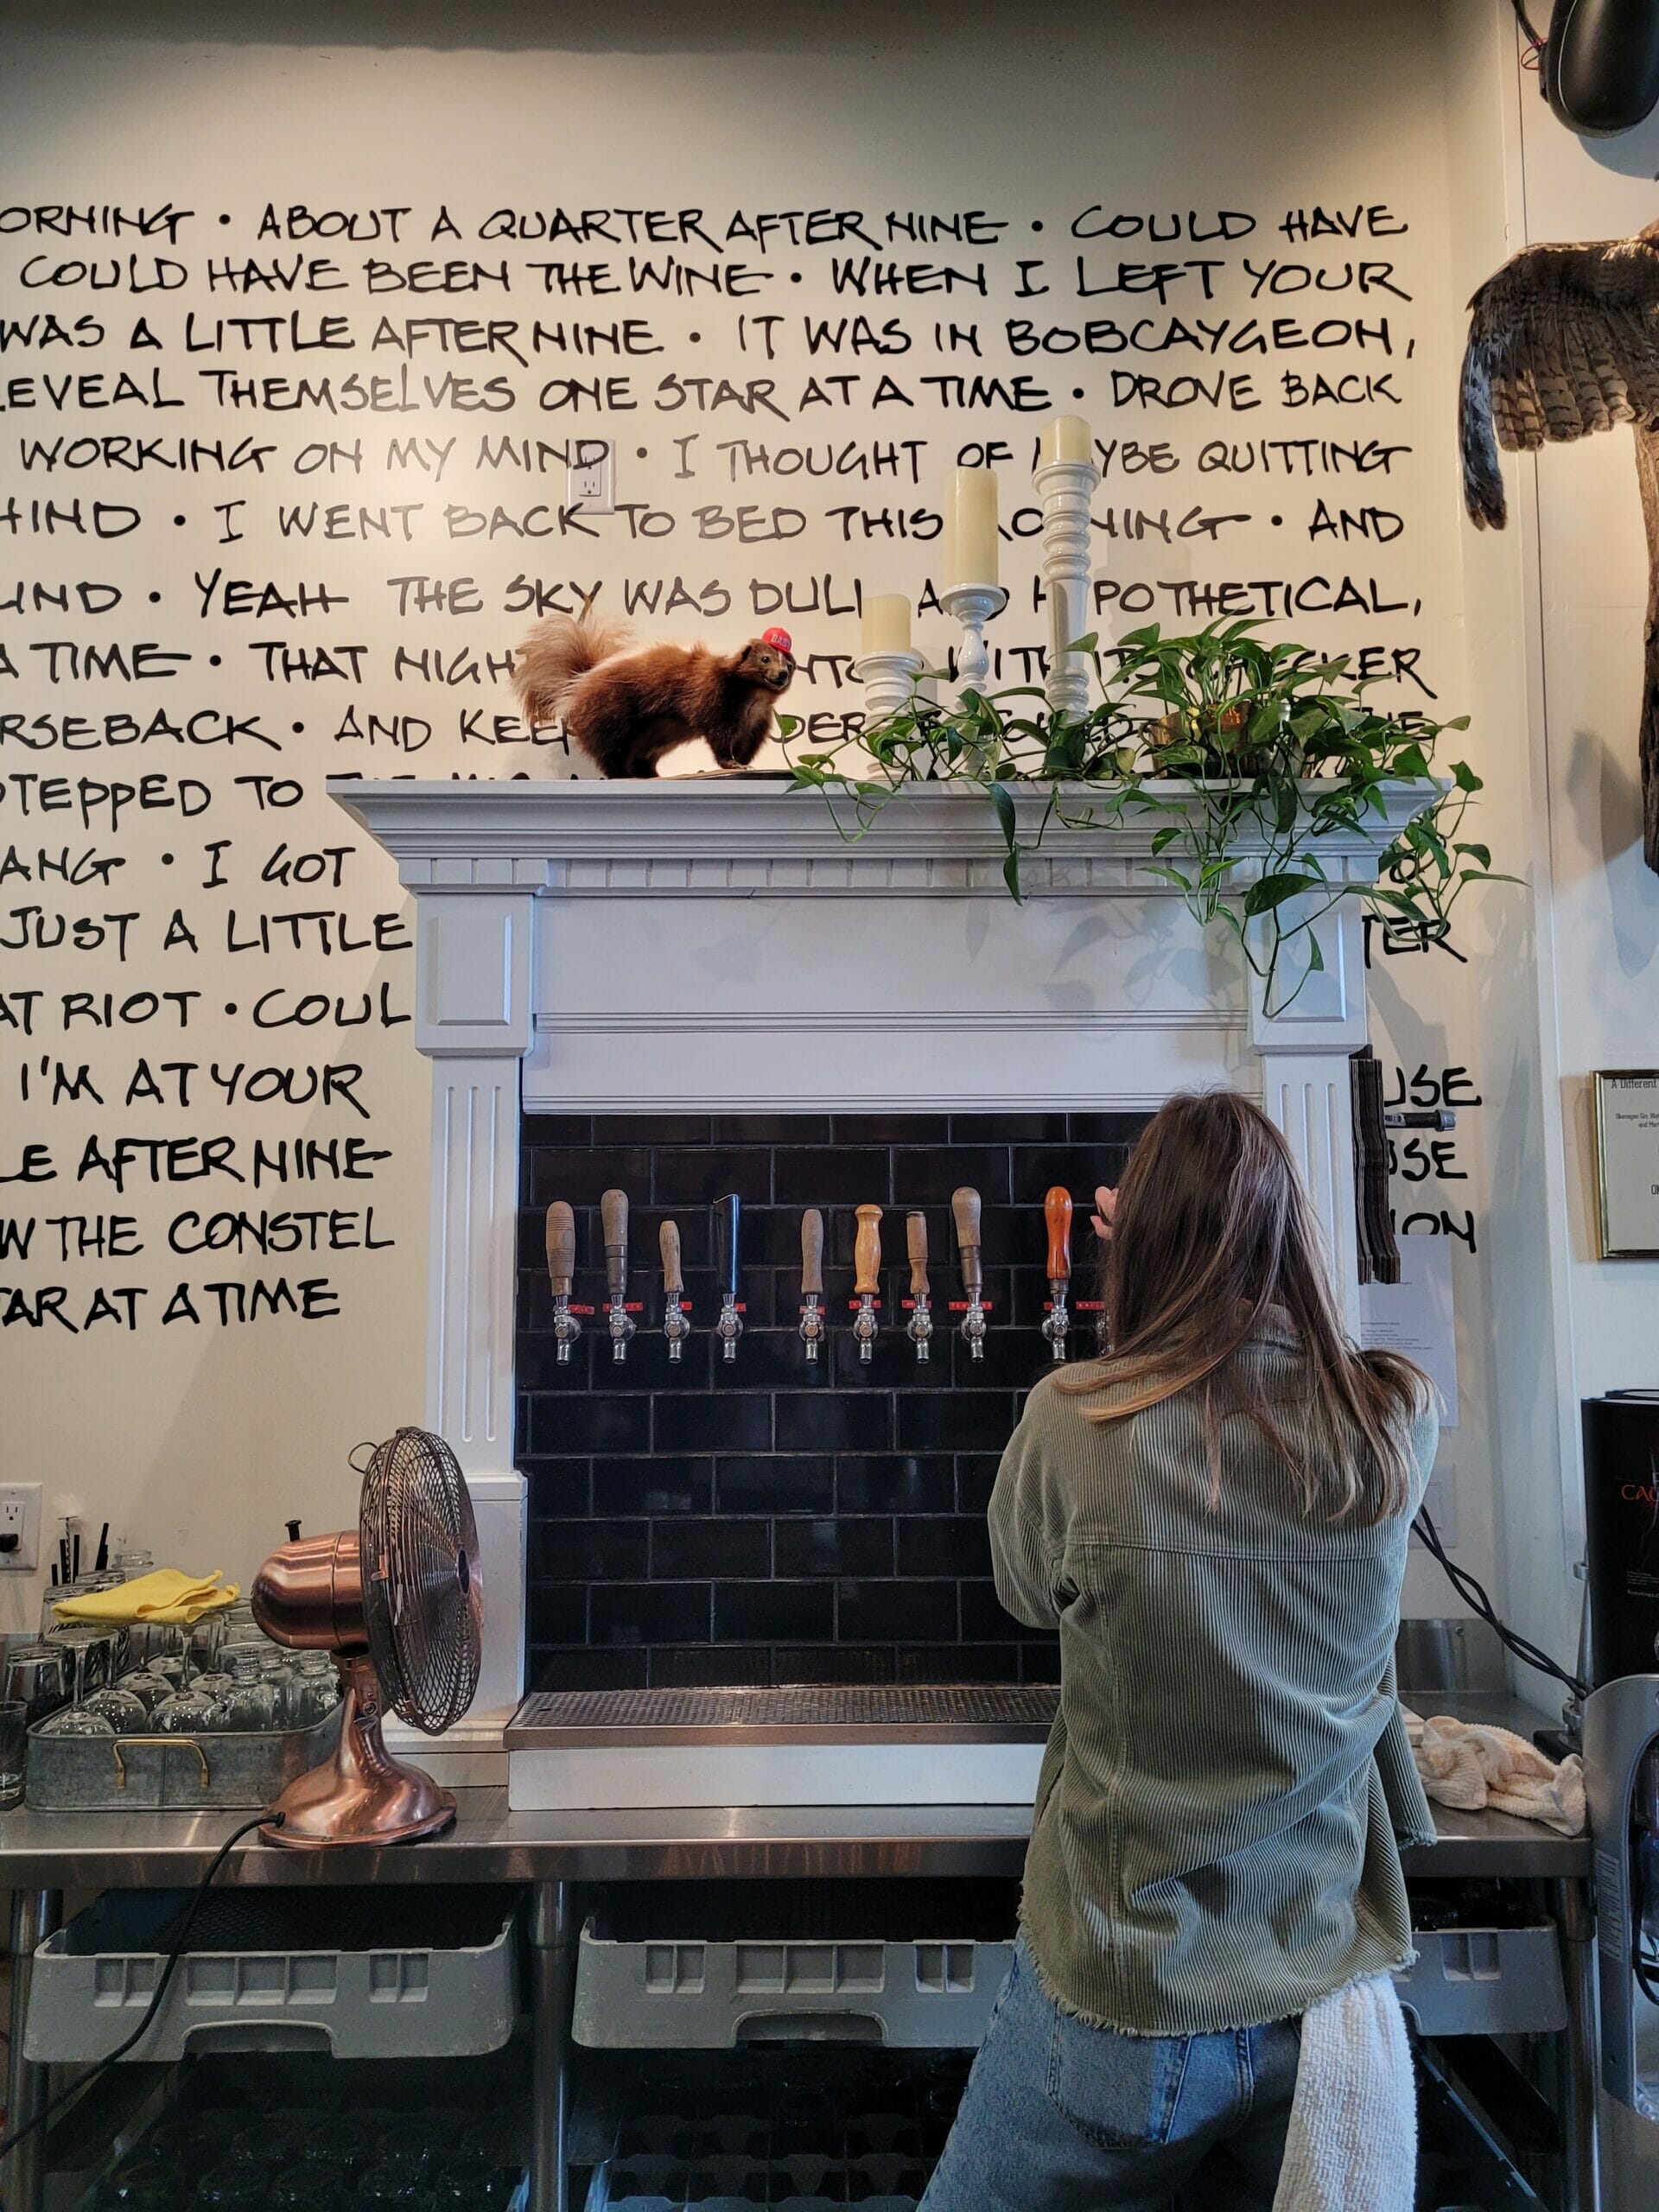 ORNING • ABOUT A QUARTER AFTER NINE • COULD HAVE
COULD HAVE BEEN THE WINE • WHEN I LEFT YOUR
WAS A LITTLE AFTER NINE • IT WAS IN BOBCAYGEON,
EVEAL THEMSELVES ONE STAR AT A TIME • DROVE BACK
WORKING ON MY MIND • I THOUGHT OF YBE QUITTING
HIND • I WENT BACK TO BED THIS NING • AND
IND • YEAH THE SKY WAS DULL A D H POTHETICAL,
A TIME • THAT NIGH NTO WITH ITS CHECKER
RSEBACK • AND KEEP DER
STEPPED TO
ANG • I GOT
JUST A LITTLE TER
AT RIOT • COUL
I'M AT YOUR USE
LE AFTER NINE- USE
W THE CONSTEL ION
TAR AT A TIME
A Different